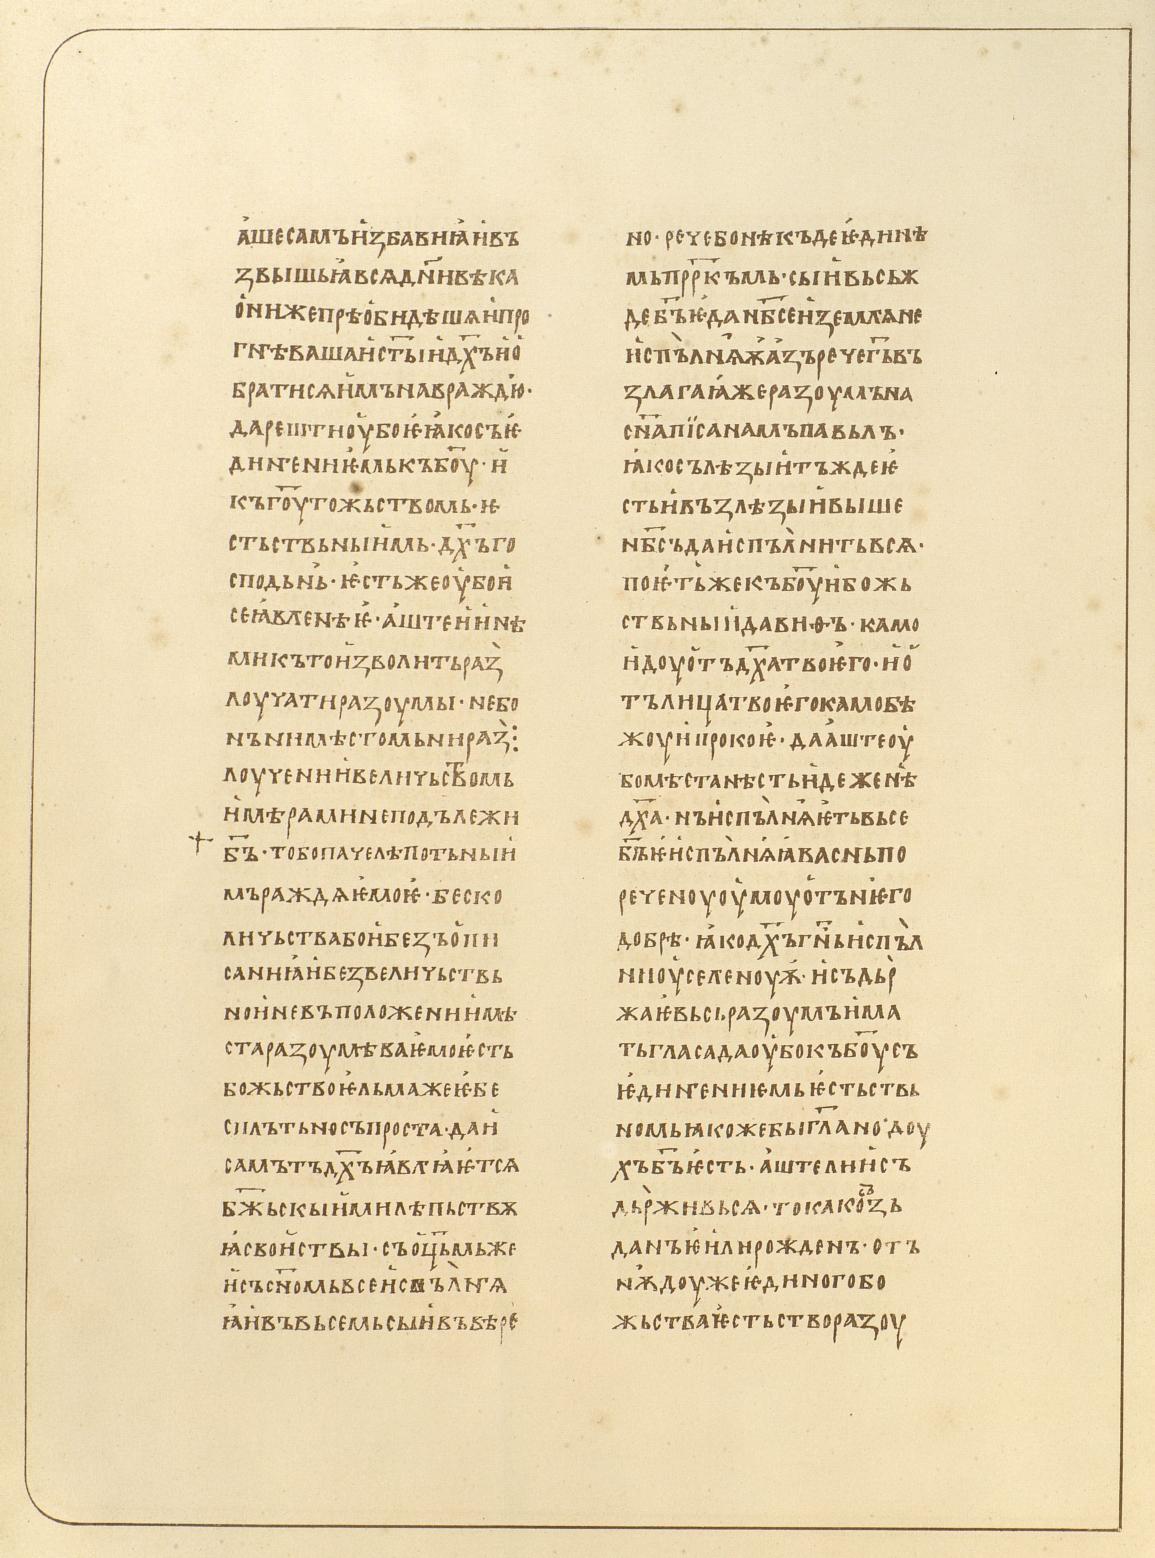 а҆шесамъи҆ꙁбавиꙗ҆и҆въ
ꙁвышьꙗ҆всѧдн҃и҆вѣка
ѻ҆нижепрѣѡ҆бидѣшѧи҆про
гнѣвашаи҆ст҃ыи҆дх҃ъи҆о҆
братисѧи҆мънавраждю҆·
дарештиоу҆боѥ҆ꙗ҆косъѥ҆
диненииѥ҆мькъбо҃у·и҆
къго҃утожьствомь·ѥ
стьствьныи҆мь·дх҃ъго
сподьнь·ѥ҆стьжеоу҆бои҆
сеꙗ҆вленѣѥ҆·а҆штеи҆инѣ
микътои҆ꙁволитьраꙁ
лоучатираꙁоумы·небо
нънимѣстомьнираꙁ:
лоучениивеличьств҃омь
и҆мѣраминеподълежи
б҃ъ·тобопачелѣпотьныи҆
мъраждѧѥ҆моѥ҆·беско
личьствабои҆беꙁъо҆пи
саниꙗ҆и҆беꙁвеличьствь
нои҆невъположениии҆мѣ
стараꙁоумѣваѥ҆моѥ҆сть
божьствоѥ҆льмажеѥ҆бе
сплътьносъпроста·даи҆
самътъдх҃ъꙗ҆влꙗ҆ѥ҆тсѧ
бж҃ьскыи҆милѣпьствѫ
ꙗ҆свои҆ствы·съоц҃ьмьже
и҆съсн҃омьвсеи҆спълнѧ
ꙗ҆и҆въвьсемьсыи҆въвѣре
но·речебонѣкъдеѥ҆динѣ
мьпрр҃къмь·сыи҆вьсьж
деб҃ъѥ҆данб҃сеи҆ꙁемлѧне
и҆спълнѧѫа҆ꙁъречег҃ьвъ
ꙁлагаꙗ҆жераꙁоумъна
сн҃апїсанамъпавьлъ·
ꙗ҆косълѣꙁыи҆тъждеѥ҆
стьи҆въꙁлѣꙁыи҆выше
нб҃съдаи҆спълнитьвсѧ·
поѥ҆тьжекъбо҃уи҆божь
ствьныи҆давиѳъ·камо
и҆доуо҆тъдх҃атвоѥ҆го·и҆о҆
тълицатвоѥ҆гокамобѣ
жоуи҆прокоѥ҆·даа҆штеоу҆
бомѣстанѣстьи҆деженѣ
дх҃а·нъи҆спълнѧѥ҆тьвьсе
б҃ъѥ҆и҆спълнѧꙗ҆васньпо
реченоуоу҆моуо҆тънѥ҆го
добрѣ·ꙗ҆кодх҃ъгн҃ьи҆спъл
ниоу҆селеноуѫ҆·и҆съдьр
жаѥ҆вьсьраꙁоумъи҆ма
тьгласадаоу҆бокъбо҃усъ
ѥ҆динениѥмьѥ҆стьствь
номьꙗкожебыгл҃анодоу
хъб҃ъѥ҆сть·а҆штелии҆съ
дьрживьсѧ·токакоѡ҆ꙁь
данъѥ҆и҆лирожденъ·отъ
нѫдоужеѥ҆диногобо
жьстваѥ҆стьствораꙁоу